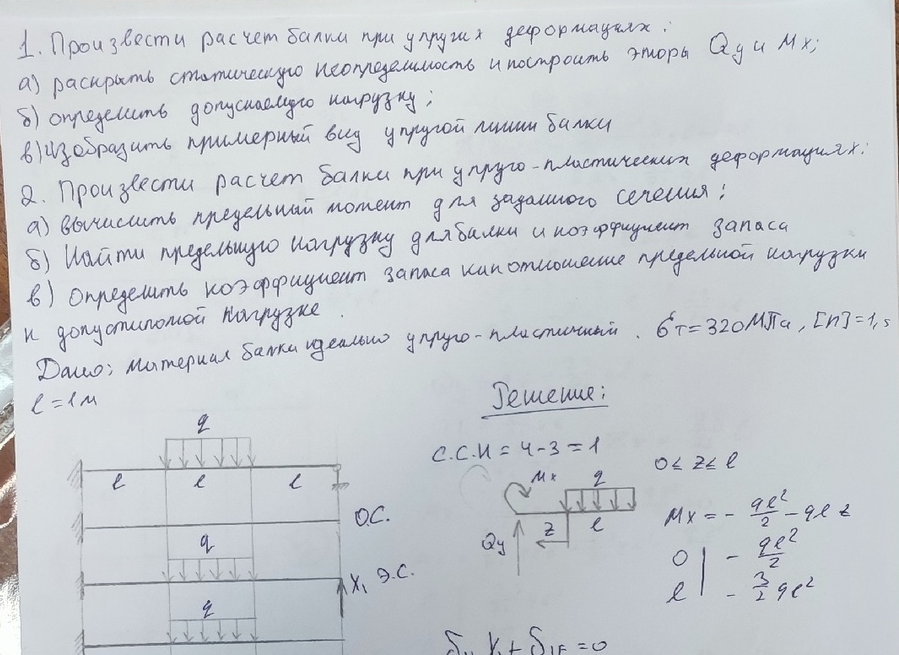 1. Произвести расчет балки при упругих деформациях:
а) раскрыть статическую неопределимость и построить эпюры Qy и Mx;
б) определить допускаемую нагрузку;
в) изобразить примерный вид упругой линии балки
2. Произвести расчет балки при упруго-пластических деформациях:
а) вычислить предельный момент для заданного сечения;
б) Найти предельную нагрузку для балки и коэффициент запаса
в) Определить коэффициент запаса как отношение предельной нагрузки
к допустимой нагрузке.
Дано: материал балки идеально упруго-пластичный. σт=320МПа, [n]=1,5
l=1м
Решение:
q
С.С.Н = 4-3 = 1
0 ≤ z ≤ l
l l l
Mx
q
Mx = - ql²/2 - qlz
О.С.
Qy
z
l
0 | - ql²/2
q
X₁
Э.С.
l | - 3/2 ql²
q
δ₁₁ X₁ + δ₁F = 0